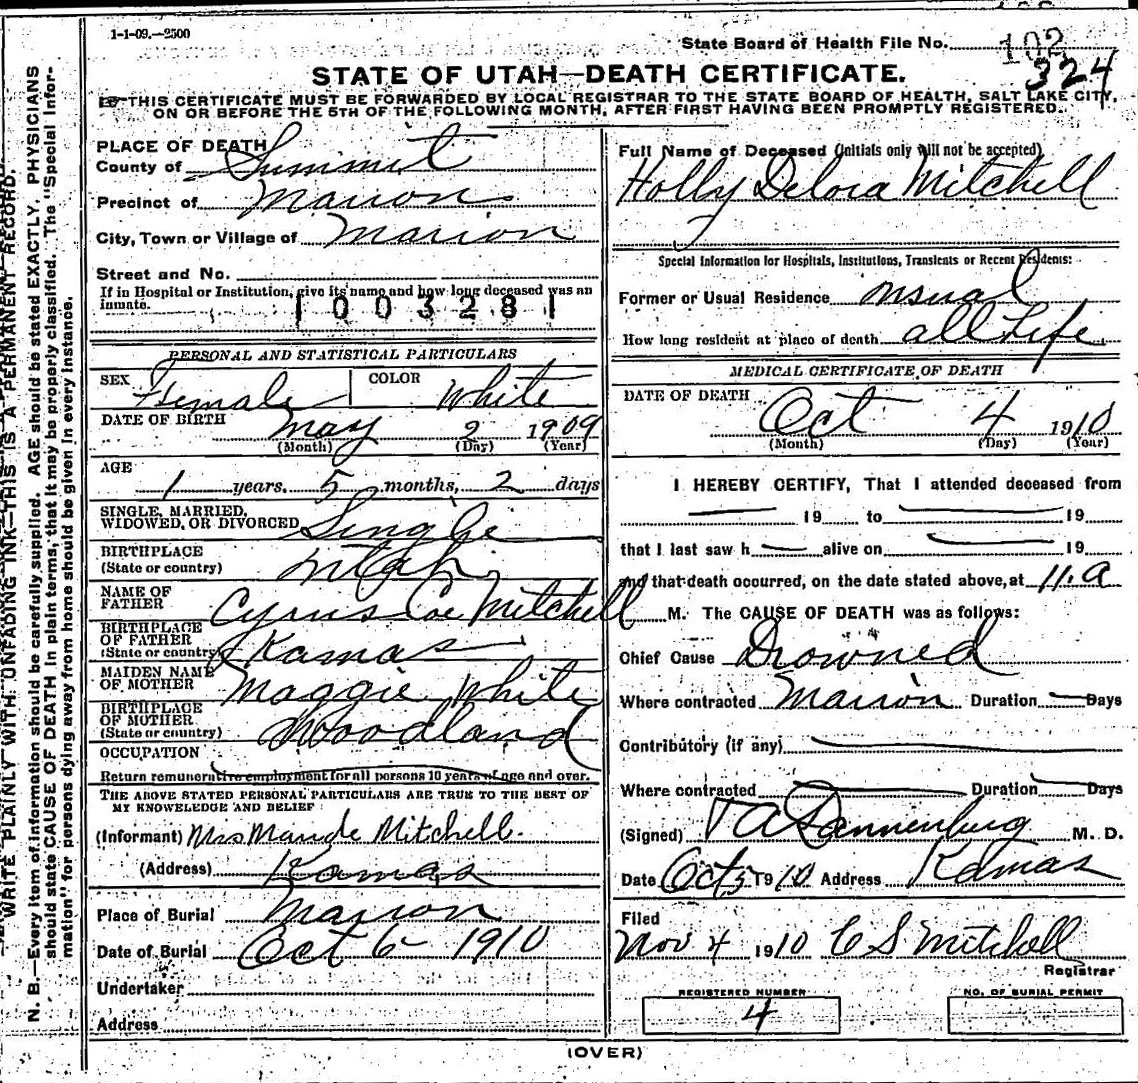 1-1-09.—2500
State Board of Health File No. 102
324
STATE OF UTAH—DEATH CERTIFICATE.
THIS CERTIFICATE MUST BE FORWARDED BY LOCAL REGISTRAR TO THE STATE BOARD OF HEALTH, SALT LAKE CITY,
ON OR BEFORE THE 5TH OF THE FOLLOWING MONTH, AFTER FIRST HAVING BEEN PROMPTLY REGISTERED.
WRITE PLAINLY WITH UNFADING INK—THIS IS A PERMANENT RECORD.
N. B.—Every item of information should be carefully supplied. AGE should be stated EXACTLY. PHYSICIANS
should state CAUSE OF DEATH in plain terms, that it may be properly classified. The "Special Infor-
mation" for persons dying away from home should be given in every instance.
PLACE OF DEATH
County of Summit
Precinct of Marion
City, Town or Village of Marion
Street and No.
If in Hospital or Institution, give its name and how long deceased was an
inmate.
1003281
PERSONAL AND STATISTICAL PARTICULARS
SEX Female COLOR White
DATE OF BIRTH May 2 1909
(Month) (Day) (Year)
AGE
1 years, 5 months, 2 days
SINGLE, MARRIED,
WIDOWED, OR DIVORCED Single
BIRTHPLACE
(State or country) Utah
NAME OF
FATHER Cyrus Coe Mitchell
BIRTHPLACE
OF FATHER
(State or country) Kamas
MAIDEN NAME
OF MOTHER Maggie White
BIRTHPLACE
OF MOTHER
(State or country) Woodland
OCCUPATION
Return remunerative employment for all persons 10 years of age and over.
THE ABOVE STATED PERSONAL PARTICULARS ARE TRUE TO THE BEST OF
MY KNOWELEDGE AND BELIEF
(Informant) Mrs Maude Mitchell.
(Address) Kamas
Place of Burial Marion
Date of Burial Oct 6 - 1910
Undertaker
Address
Full Name of Deceased (Initials only will not be accepted)
Holly Delora Mitchell
Special Information for Hospitals, Institutions, Transients or Recent Residents:
Former or Usual Residence usual
How long resident at place of death all Life
MEDICAL CERTIFICATE OF DEATH
DATE OF DEATH Oct 4 1910
(Month) (Day) (Year)
I HEREBY CERTIFY, That I attended deceased from
19 to 19
that I last saw h alive on 19
and that death occurred, on the date stated above, at 11. a
M. The CAUSE OF DEATH was as follows:
Chief Cause Drowned
Where contracted Marion Duration Days
Contributory (if any)
Where contracted Duration Days
(Signed) T A Dannenburg M. D.
Date Oct 5 1910 Address Kamas
Filed
Nov 4 1910 C S Mitchell
Registrar
REGISTERED NUMBER
4
NO. OF BURIAL PERMIT
(OVER)